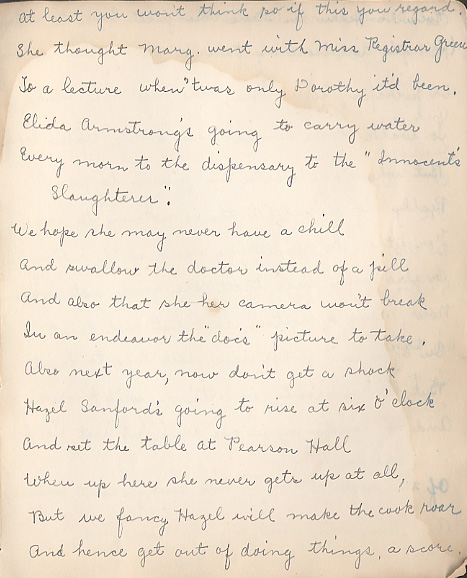 at least you won't think so if this you regard.
She thought Marg. went with Miss Registrar Green
To a lecture when "twas only Dorothy it'd been.
Elida Armstrong's going to carry water
Every morn to the dispensary to the "Innocent's
Slaughterer".
We hope she may never have a chill
And swallow the doctor instead of a pill
And also that she her camera won't break
In an endeavor the "doc's" picture to take.
Also next year, now don't get a shock
Hazel Sanford's going to rise at six O'clock
And set the table at Pearson Hall
When up here she never gets up at all,
But we fancy Hazel will make the cook roar
And hence get out of doing things, a score.